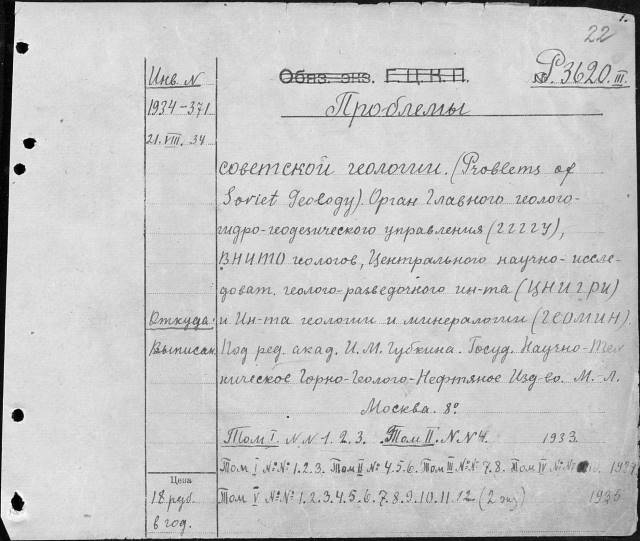 1.
22
Инв. N
Обяз. экз. Г.Ц.К.П.
№ P.3620.III
1934-371
Проблемы
21.VIII.34
советской геологии. (Problems of
Soviet Geology). Орган Главного геолого-
гидро-геодезического управления (ГГГГУ),
ВНИТО геологов, Центрального научно-иссле-
доват. геолого-разведочного ин-та (ЦНИГРИ)
Откуда:
и Ин-та геологии и минералогии (ГЕОМИН).
Выписан
Под ред. акад. И.М. Губкина. Госуд. Научно-Тех
ническое Горно-Геолого-Нефтяное Изд-во. М.-Л.
Москва. 8°
Том I. N N 1. 2. 3. Том II. N N 4. 1933.
Том I №№ 1. 2. 3. Том II № 4. 5. 6. Том III №№ 7. 8. Том IV №№
Цена
18 руб.
в год.
Том V №№ 1. 2. 3. 4. 5. 6. 7. 8. 9. 10. 11. 12 (2 экз) 1935